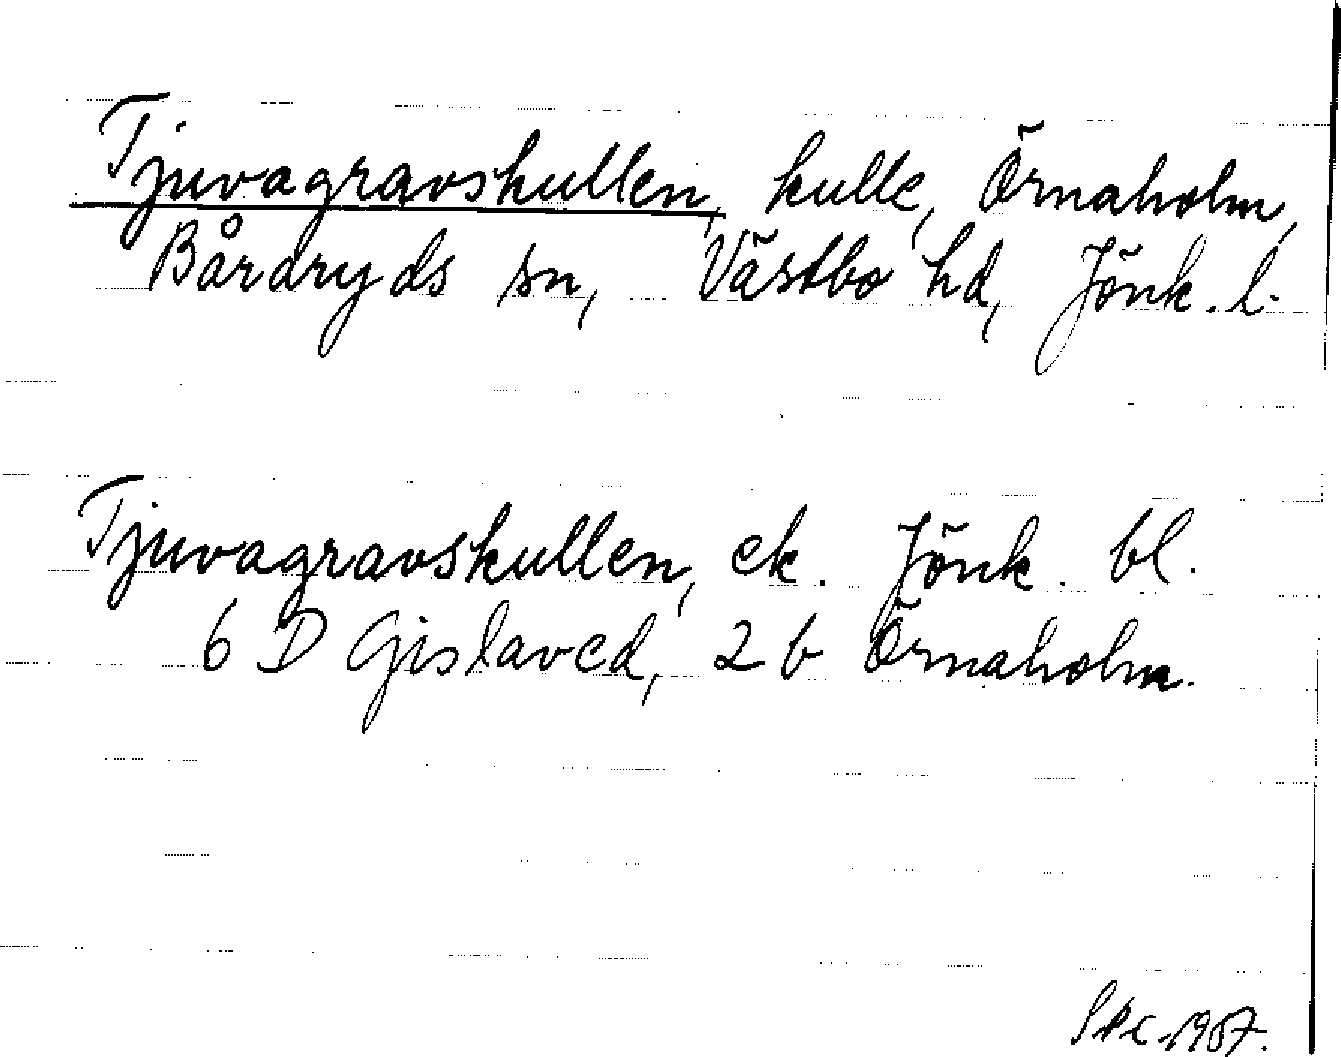 Tjuvagravskullen, kulle, Örnaholm,
Bårdryds sn, Västbo hd, Jönk. l.
Tjuvagravskullen, ek. Jönk. bl.
6 D Gislaved, 2 b Örnaholm.
1957.